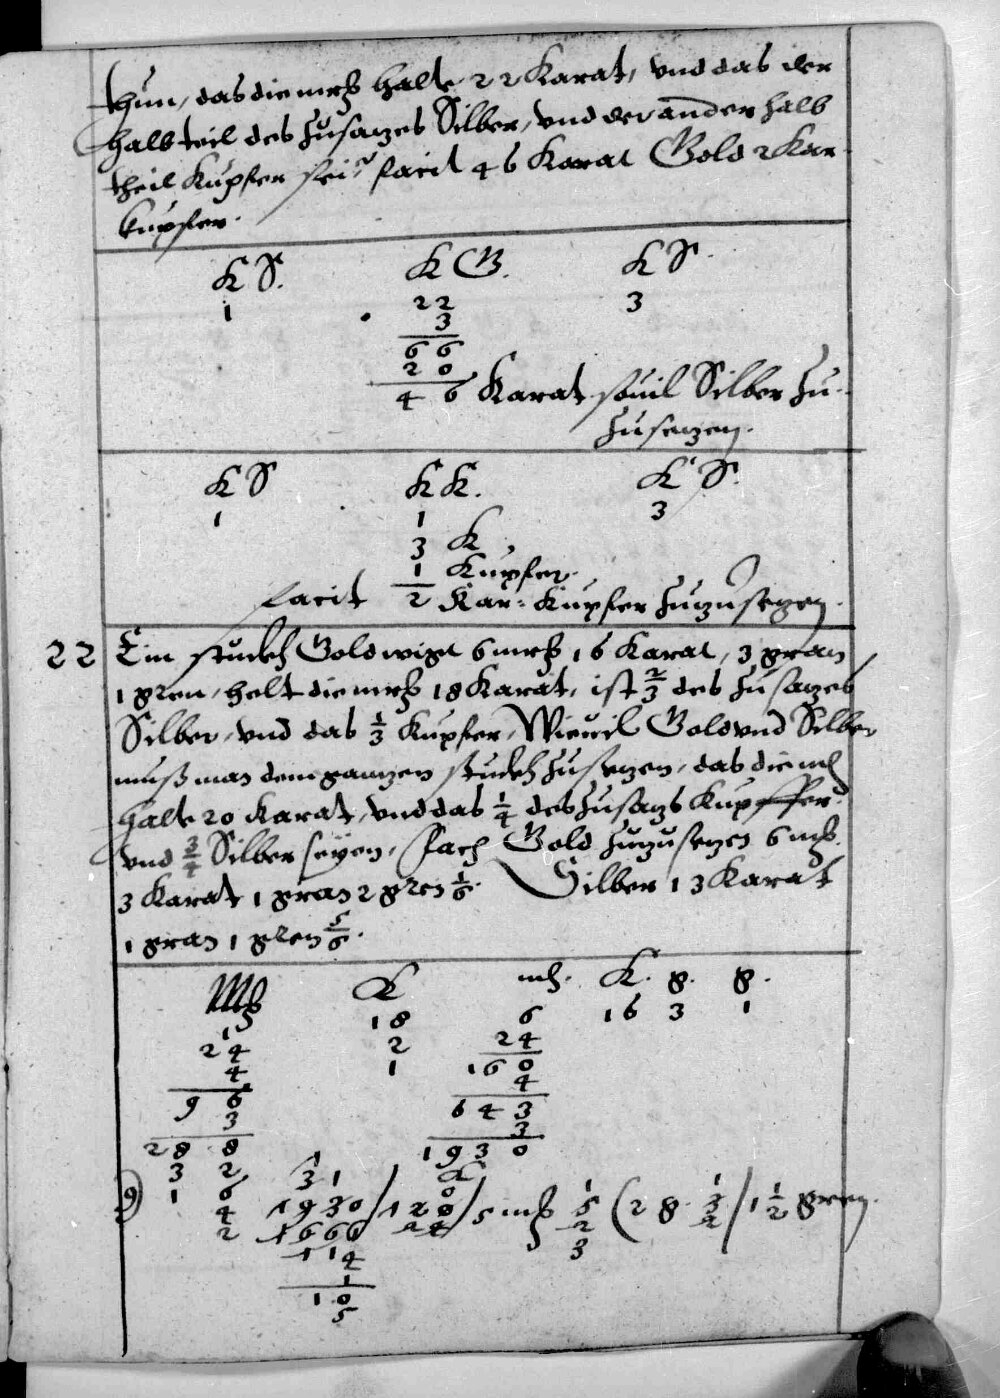 thun, das die mrk halte 22 Karat, vnd das der
halb teil des Zusatzes Silber, vnd der ander halb
theil Kupfer sei, facit 46 Karat Gold 2 Kar
Kupfer.
K S. K G. K S.
1 22 3
3
6 6
2 0
4 6 Karat souil Silber Zu
Zusetzen.
K S K K. K S.
1 1 3
3 K
1 Kupfer.
facit 2 Kar: Kupfer Zuzusetzen.
22 Ein stuckh Gold wigt 6 mrk 16 Karat, 3 gran
1 gren, helt die mrk 18 Karat, ist 2/3 des Zusatzes
Silber, vnd das 1/3 Kupfer, Wieuil Gold vnd Silber
muß man dem gantzen stuckh Zusetzen, das die mk
halte 20 Karat, vnd das 1/4 des Zusatzs Kupffer
vnd 3/4 Silber seyen, Fach Gold Zuzusetzen 6 mk.
3 Karat 1 gran 2 gren 1/6. Silber 13 Karat
1 gran 1 gren 5/6.
Mk K mk. K. g. g.
1 18 6 16 3 1
24 2 24
4 1 16 0
9 6 4
3 6 4 3
28 8 3
3 2 19 3 0
1 6
4 1930 / 128 / 5 mk 1/5 (2 g. 1/2 / 1 1/2 gren.
2 1666 24 2
1 1 4 3
1
1 0
5